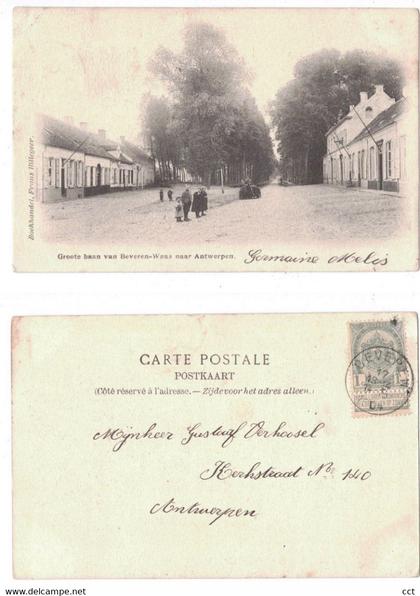 Boekhandel, Frans Billegeer.
Groote baan van Beveren-Waas naar Antwerpen.
Germaine Melis
CARTE POSTALE
POSTKAART
(Côté réservé à l'adresse. — Zijde voor het adres alleen.)
1
BEVEREN
Mijnheer Gustaaf Verhoosel
Kerkstraat No 140
Antwerpen
cct